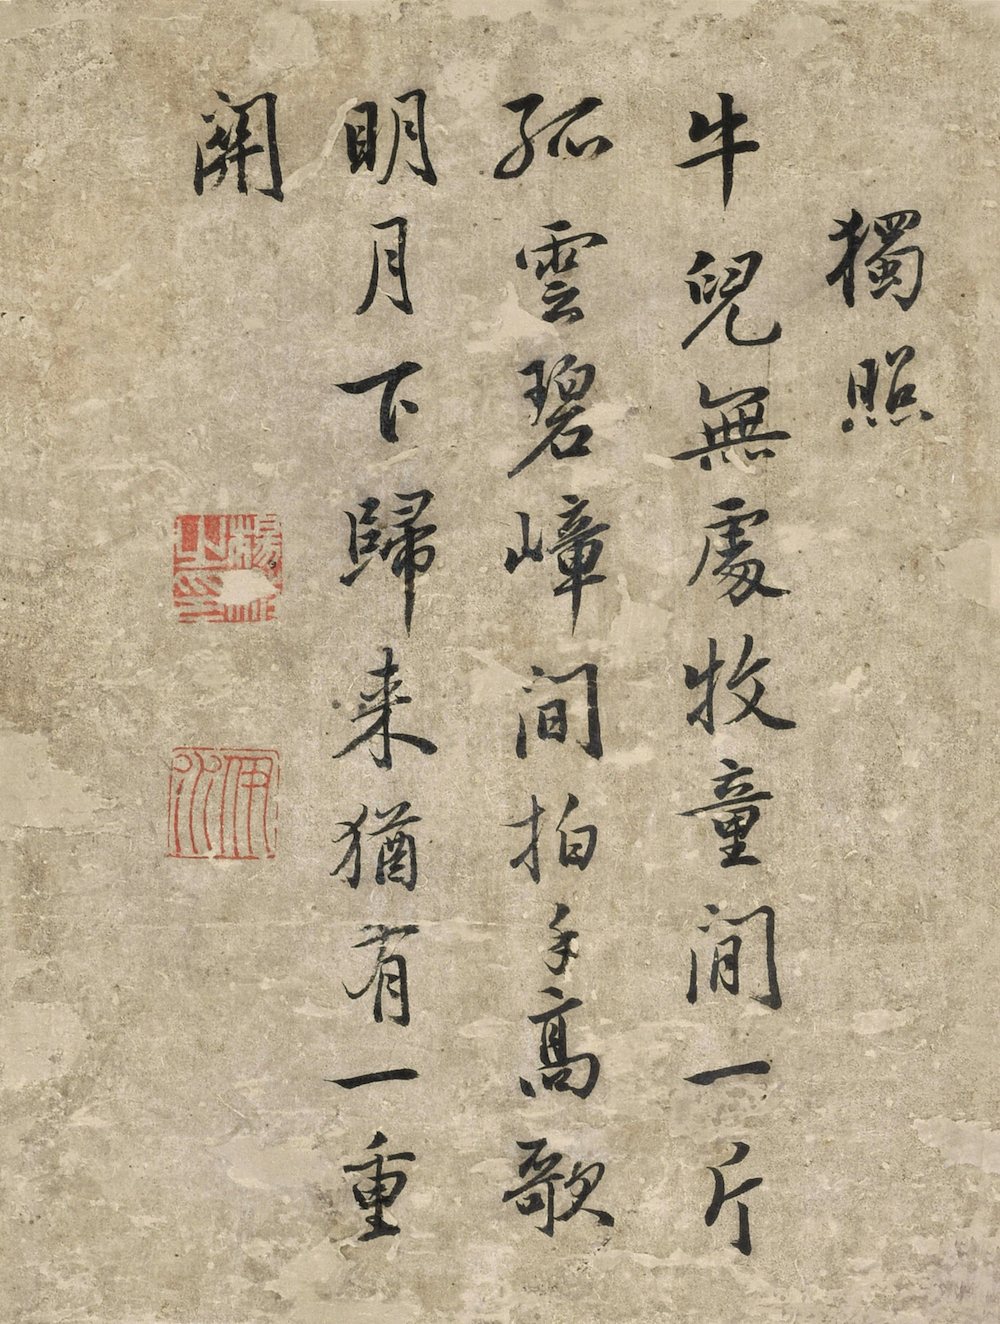 獨照
牛兒無處牧童閒一片
孤雲碧嶂間拍手高歌
明月下歸来猶有一重
關